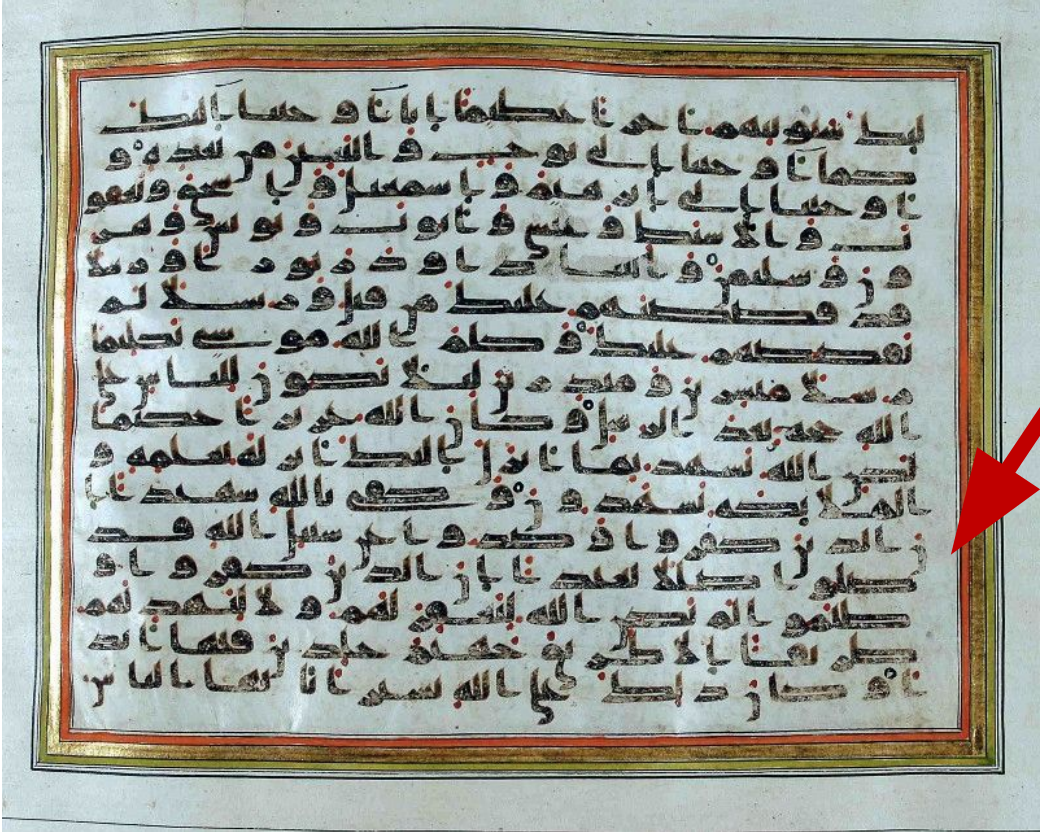 ليك سنوتيهم اجرا عظيما انا اوحينا اليك
كما اوحينا الى نوح والنبين من بعده و
اوحينا الى ابرهيم واسمعيل واسحق ويعقو
ب والاسبط وعيسى وايوب ويونس وهر
ون وسليمن واتينا داود زبورا ورسلا
قد قصصنهم عليك من قبل ورسلا لم
نقصصهم عليك وكلم الله موسى تكليما
رسلا مبشرين ومنذرين ليلا يكون للناس على
الله حجه بعد الرسل وكان الله عزيزا حكيما
لكن الله يشهد بما انزل اليك انزله بعلمه و
الملىكه يشهدون وكفى بالله شهيدا ا
ن الذين كفروا وصدوا عن سبيل الله قد
ضلوا ضللا بعيدا ان الذين كفروا و
ظلموا لم يكن الله ليغفر لهم ولا ليهديهم
طريقا الا طريق جهنم خلدين فيها ابد
ا وكان ذلك على الله يسيرا يايها الناس